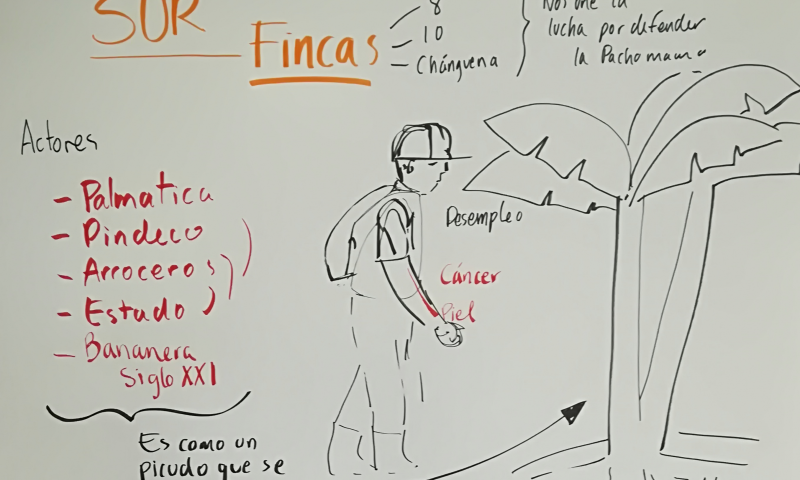 SUR
Fincas
8
10
Chánguena
Nos une la
lucha por defender
la Pachamama
Actores
- Palmatica
- Pindeco
- Arroceros
- Estado
- Bananera
Siglo XXI
Es como un
picudo que se
Desempleo
Cáncer
Piel